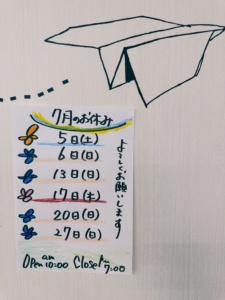 7月のお休み
5日(土)
6日(日)
13日(日)
17日(土)
20日(日)
27日(日)
よろしくお願いします
Open am 10:00 Close pm 7:00